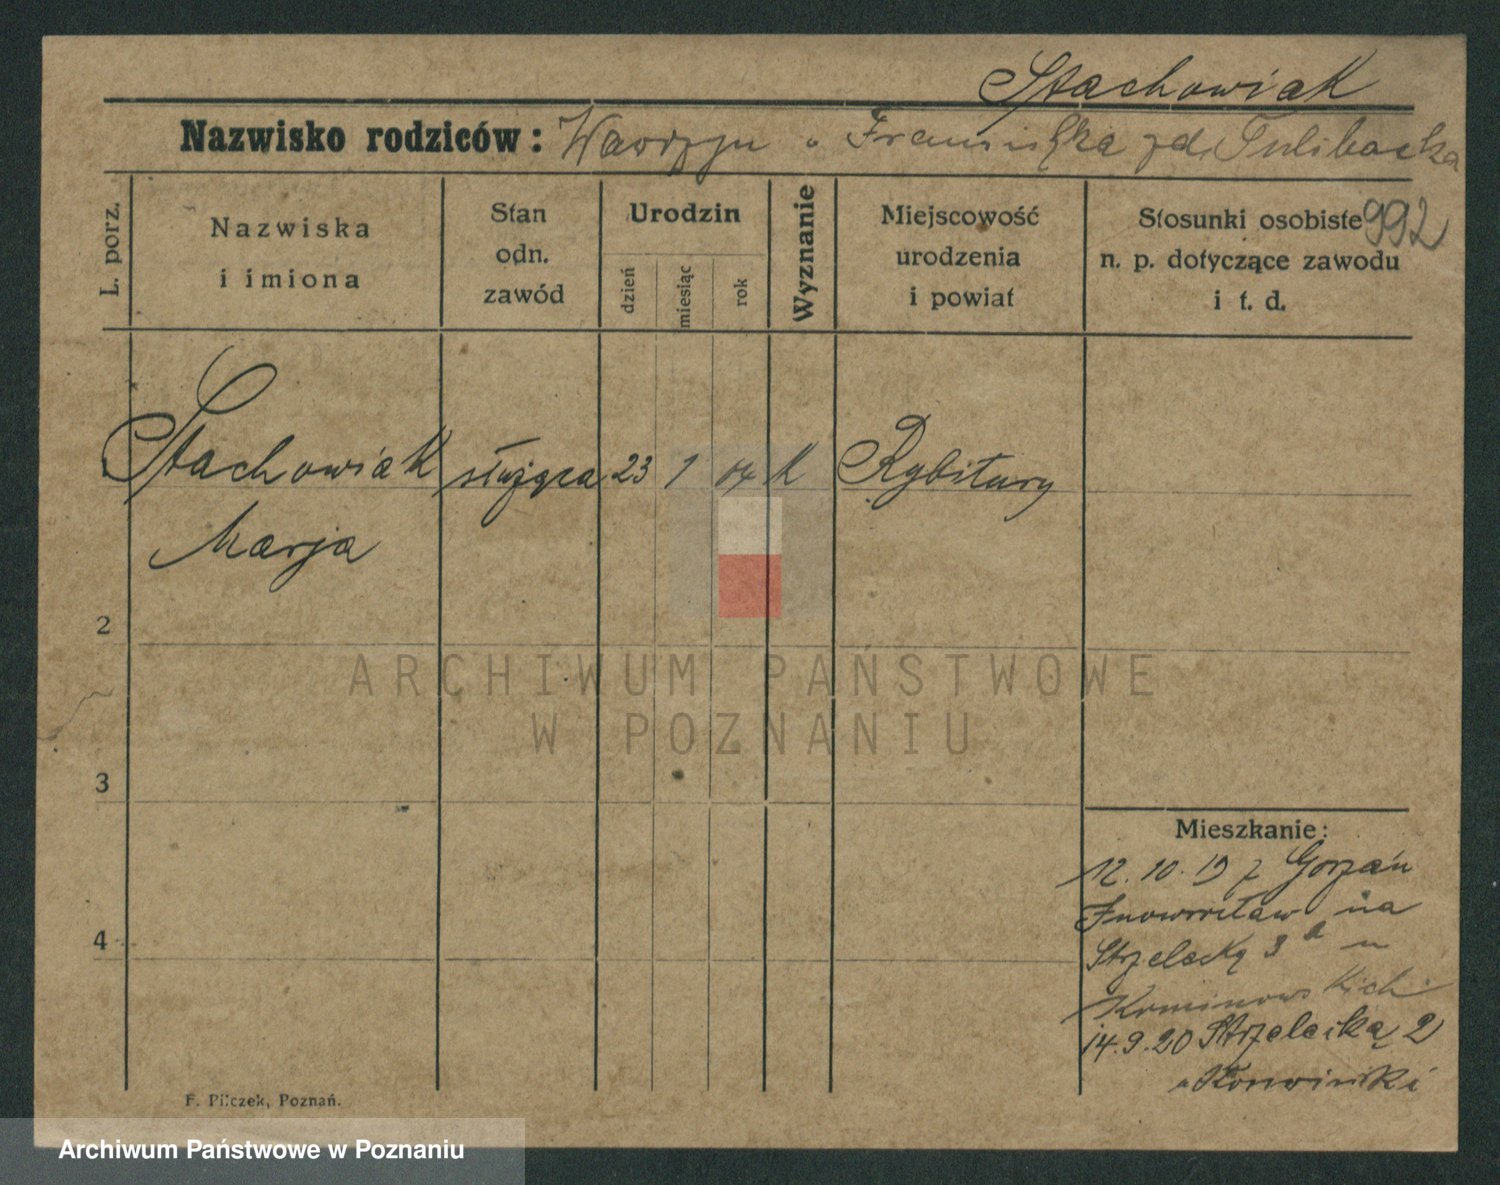 Stachowiak
Nazwisko rodziców: Wawrzyn Franciszka zd. Tulibacka
L. porz.
Nazwiska
i imiona
Stan
odn.
zawód
Urodzin
dzień
miesiąc
rok
Wyznanie
Miejscowość
urodzenia
i powiat
Stosunki osobiste 992
n. p. dotyczące zawodu
i t. d.
Stachowiak służąca 23 1 04 K Rybitwy
Marja
2
3
4
ARCHIWUM PAŃSTWOWE
W POZNANIU
Mieszkanie:
12. 10. 19 z
Inowrocław na
Strzelecką 3a u
Kominowskich
14. 9. 20 Strzelecką 2
F. Pilczek, Poznań.
Archiwum Państwowe w Poznaniu